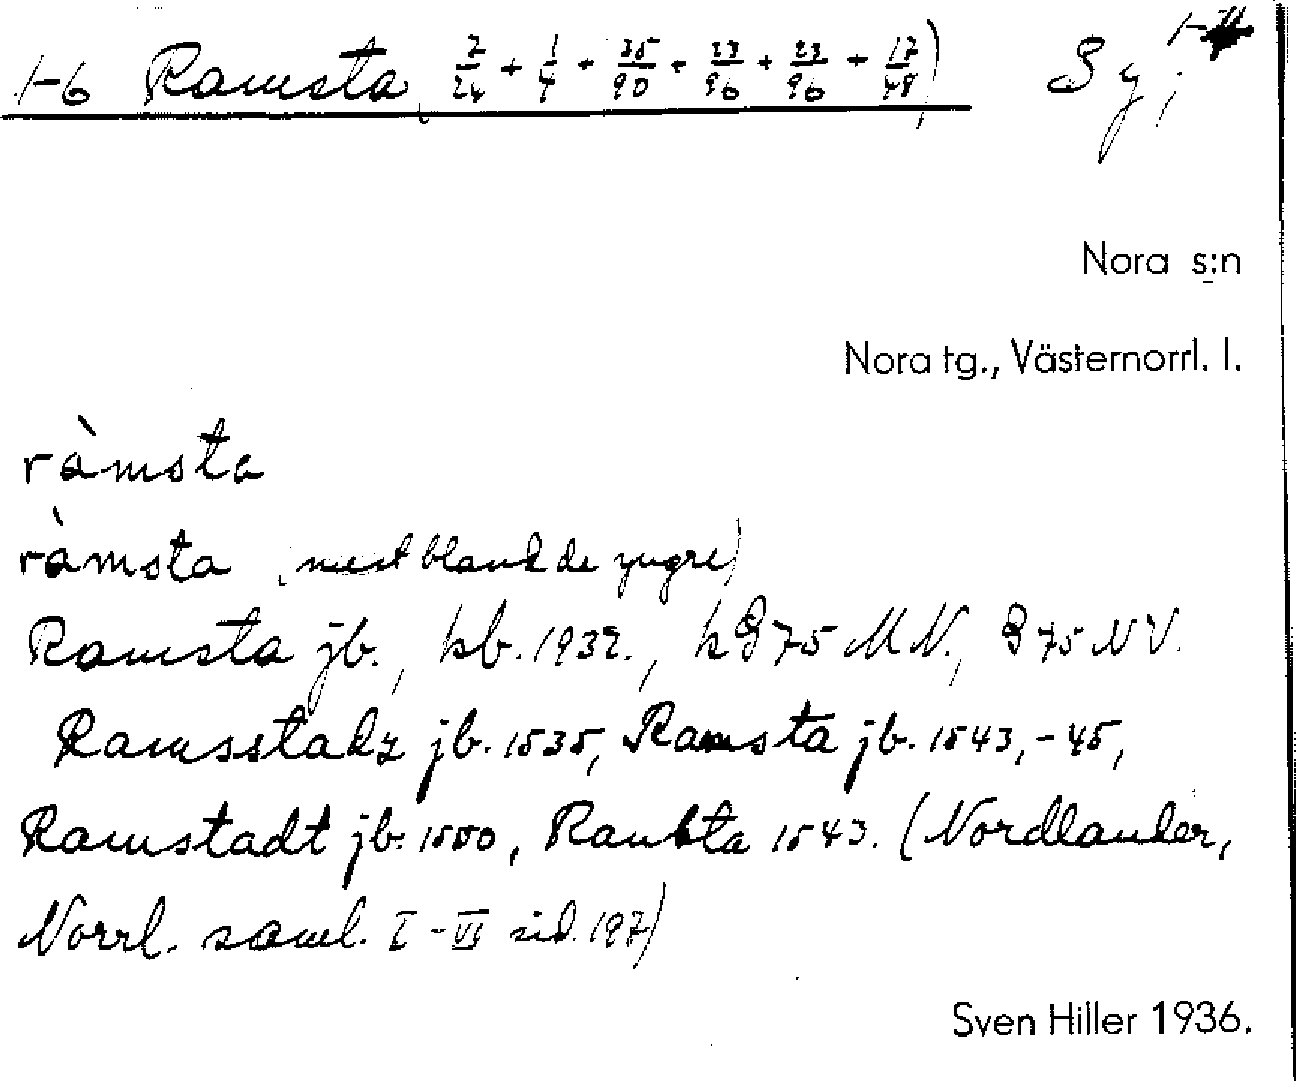 1-6 Ramsta (7/24 + 1/4 + 35/90 + 23/96 + 23/96 + 17/48) Sy,
Nora s:n
Nora tg., Västernorrl. l.
ràmsta
ràmsta (mest bland de yngre)
Ramsta jb., kb. 1932., hS 75 M N., S 75 N V.
Ramsstadz jb. 1535, Ramsta jb. 1543, -45,
Ramstadt jb. 1550, Rambta 1543. (Nordlander,
Norrl. saml. I-VI sid. 197)
Sven Hiller 1936.